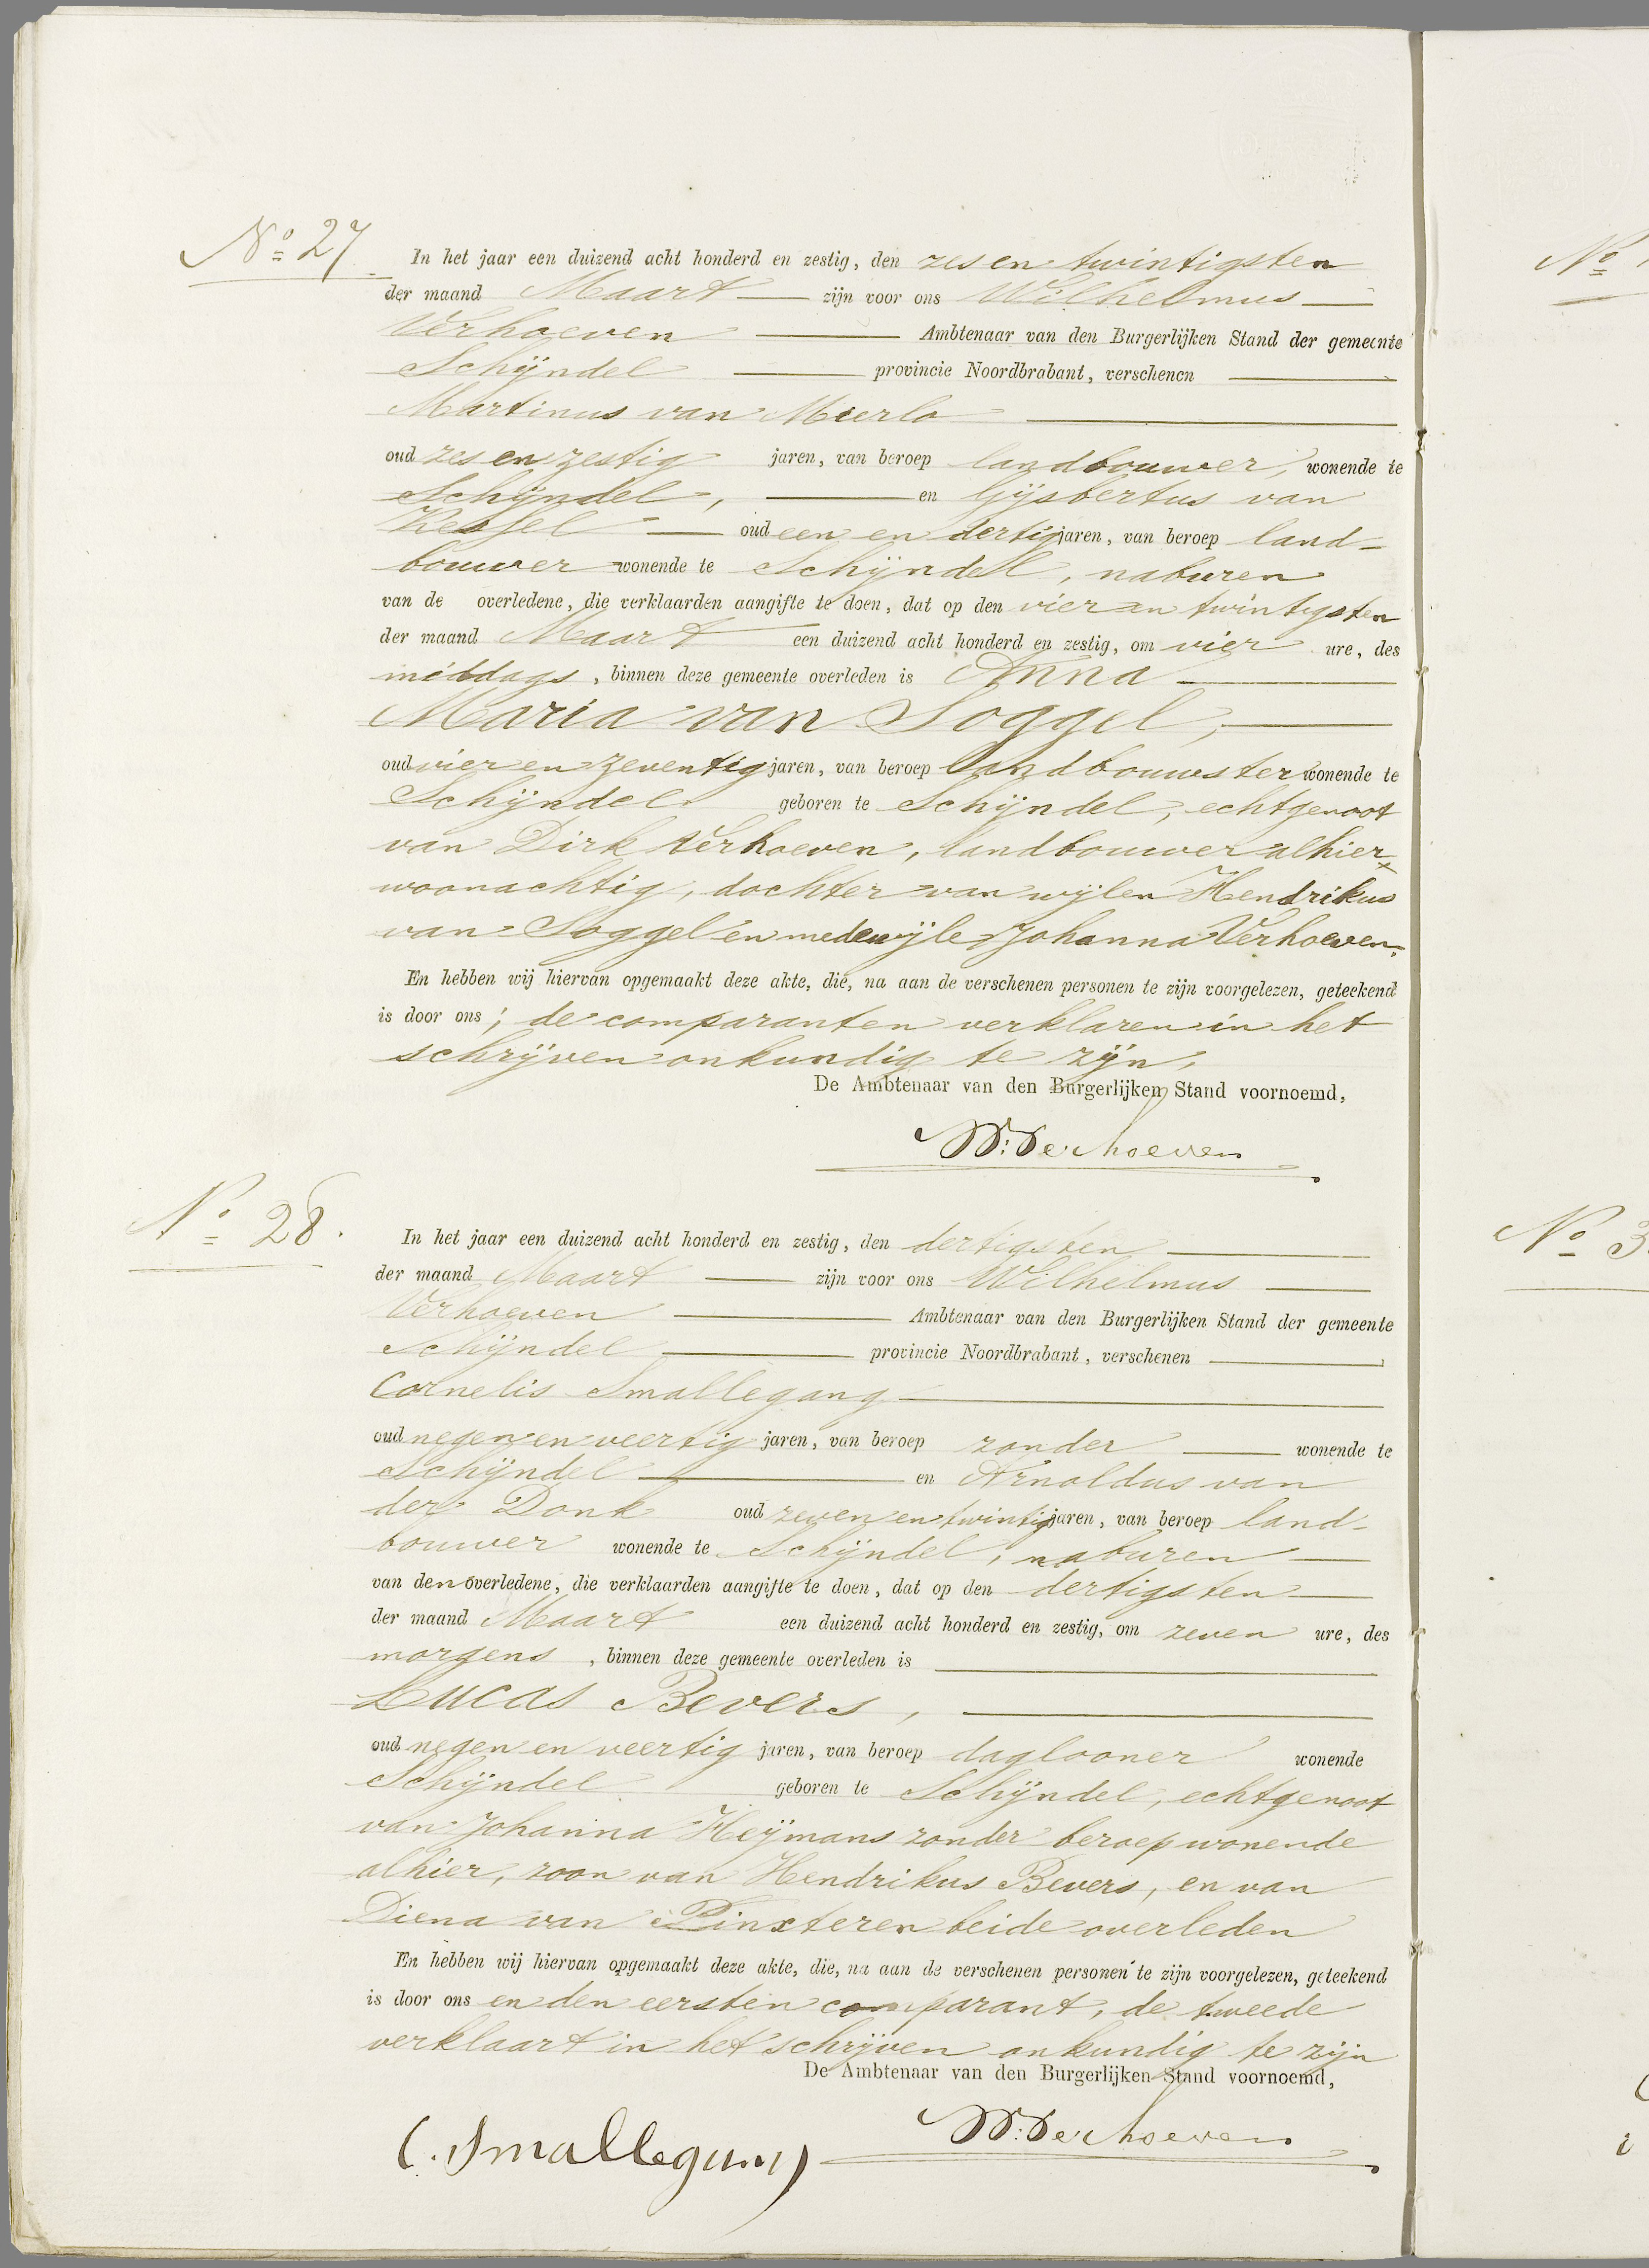 No 27
In het jaar een duizend acht honderd en zestig, den zes en twintigsten
der maand Maart zijn voor ons Wilhelmus
Verhoeven Ambtenaar van den Burgerlijken Stand der gemeente
Schijndel provincie Noordbrabant, verschenen
Martinus van Mierlo
oud zes en zestig jaren, van beroep landbouwer, wonende te
Schijndel, en Gijsbertus van
Kessel oud een en dertig jaren, van beroep land-
bouwer wonende te Schijndel, naburen
van de overledene, die verklaarden aangifte te doen, dat op den vier en twintigsten
der maand Maart een duizend acht honderd en zestig, om vier ure, des
middags, binnen deze gemeente overleden is Anna
Maria van Soggel,
oud vier en zeventig jaren, van beroep landbouwster wonende te
Schijndel geboren te Schijndel, echtgenoot
van Dirk Verhoeven, landbouwer alhier
woonachtig, dochter van wijlen Hendrikus
van Soggel en mede wijle Johanna Verhoeven.
En hebben wij hiervan opgemaakt deze akte, die, na aan de verschenen personen te zijn voorgelezen, geteekend
is door ons; de comparanten verklaren in het
schrijven onkundig te zijn.
De Ambtenaar van den Burgerlijken Stand voornoemd,
W: Verhoeven
No 28.
In het jaar een duizend acht honderd en zestig, den dertigsten
der maand Maart zijn voor ons Wilhelmus
Verhoeven Ambtenaar van den Burgerlijken Stand der gemeente
Schijndel provincie Noordbrabant, verschenen
Cornelis Smallegang
oud negen en veertig jaren, van beroep zonder wonende te
Schijndel en Arnoldus van
der Donk oud zeven en twintig jaren, van beroep land-
bouwer wonende te Schijndel, naburen
van den overledene, die verklaarden aangifte te doen, dat op den dertigsten
der maand Maart een duizend acht honderd en zestig, om zeven ure, des
morgens, binnen deze gemeente overleden is
Lucas Bevers,
oud negen en veertig jaren, van beroep daglooner wonende
Schijndel geboren te Schijndel, echtgenoot
van Johanna Heijmans zonder beroep wonende
alhier, zoon van Hendrikus Bevers, en van
Diena van Pinxteren beide overleden
En hebben wij hiervan opgemaakt deze akte, die, na aan de verschenen personen te zijn voorgelezen, geteekend
is door ons en den eersten comparant, de tweede
verklaart in het schrijven onkundig te zijn
De Ambtenaar van den Burgerlijken Stand voornoemd,
C. Smallegang W: Verhoeven
No
No 3